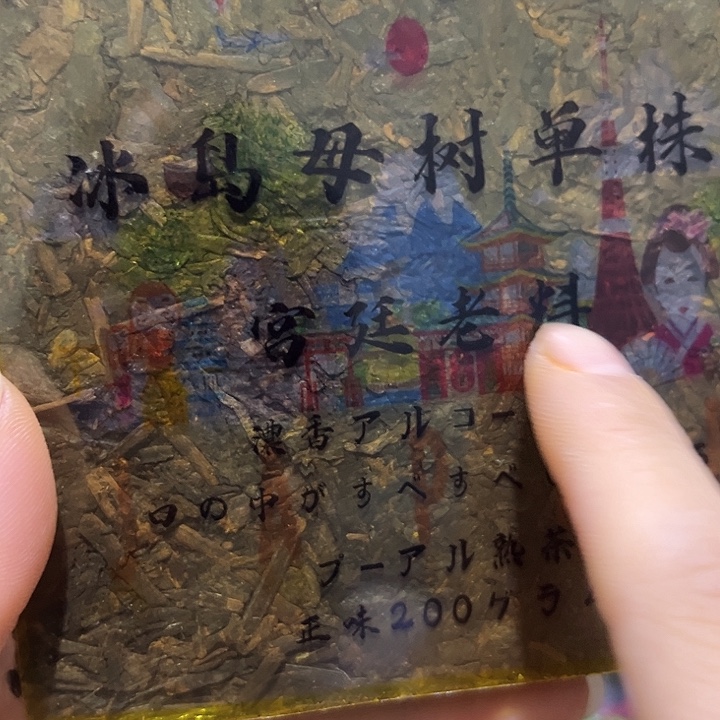 冰島母树单株
宮廷老料
濃香アルコー
口の中がすべすべ
プーアル熟茶
正味200グラ